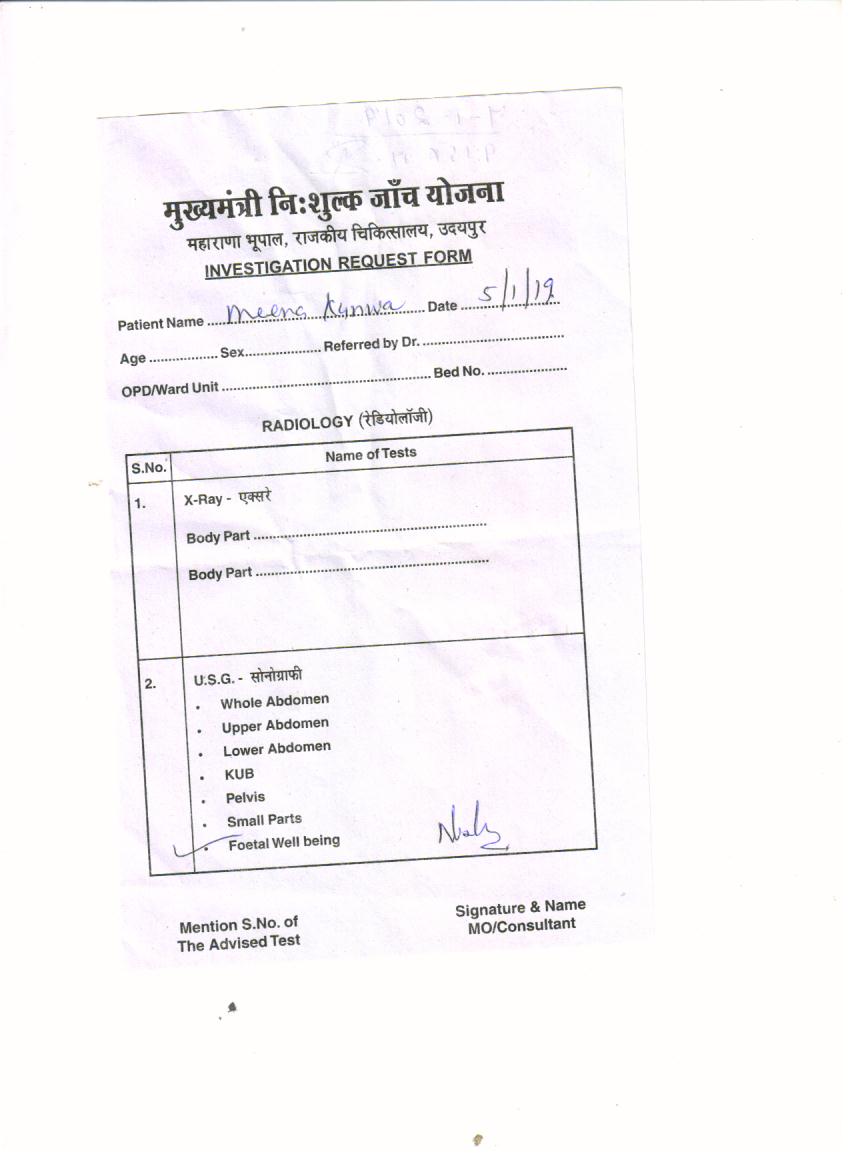 मुख्यमंत्री निःशुल्क जाँच योजना
महाराणा भूपाल, राजकीय चिकित्सालय, उदयपुर
INVESTIGATION REQUEST FORM
Patient Name ........ Meena Kunwa ........ Date 5/1/19
Age .................. Sex.................... Referred by Dr. .....................................
OPD/Ward Unit ...................................................... Bed No. .....................
RADIOLOGY (रेडियोलॉजी)
S.No. Name of Tests
1. X-Ray - एक्सरे
Body Part ............................................................
Body Part ............................................................
2. U.S.G. - सोनोग्राफी
• Whole Abdomen
• Upper Abdomen
• Lower Abdomen
• KUB
• Pelvis
• Small Parts
• Foetal Well being
Mention S.No. of
The Advised Test
Signature & Name
MO/Consultant